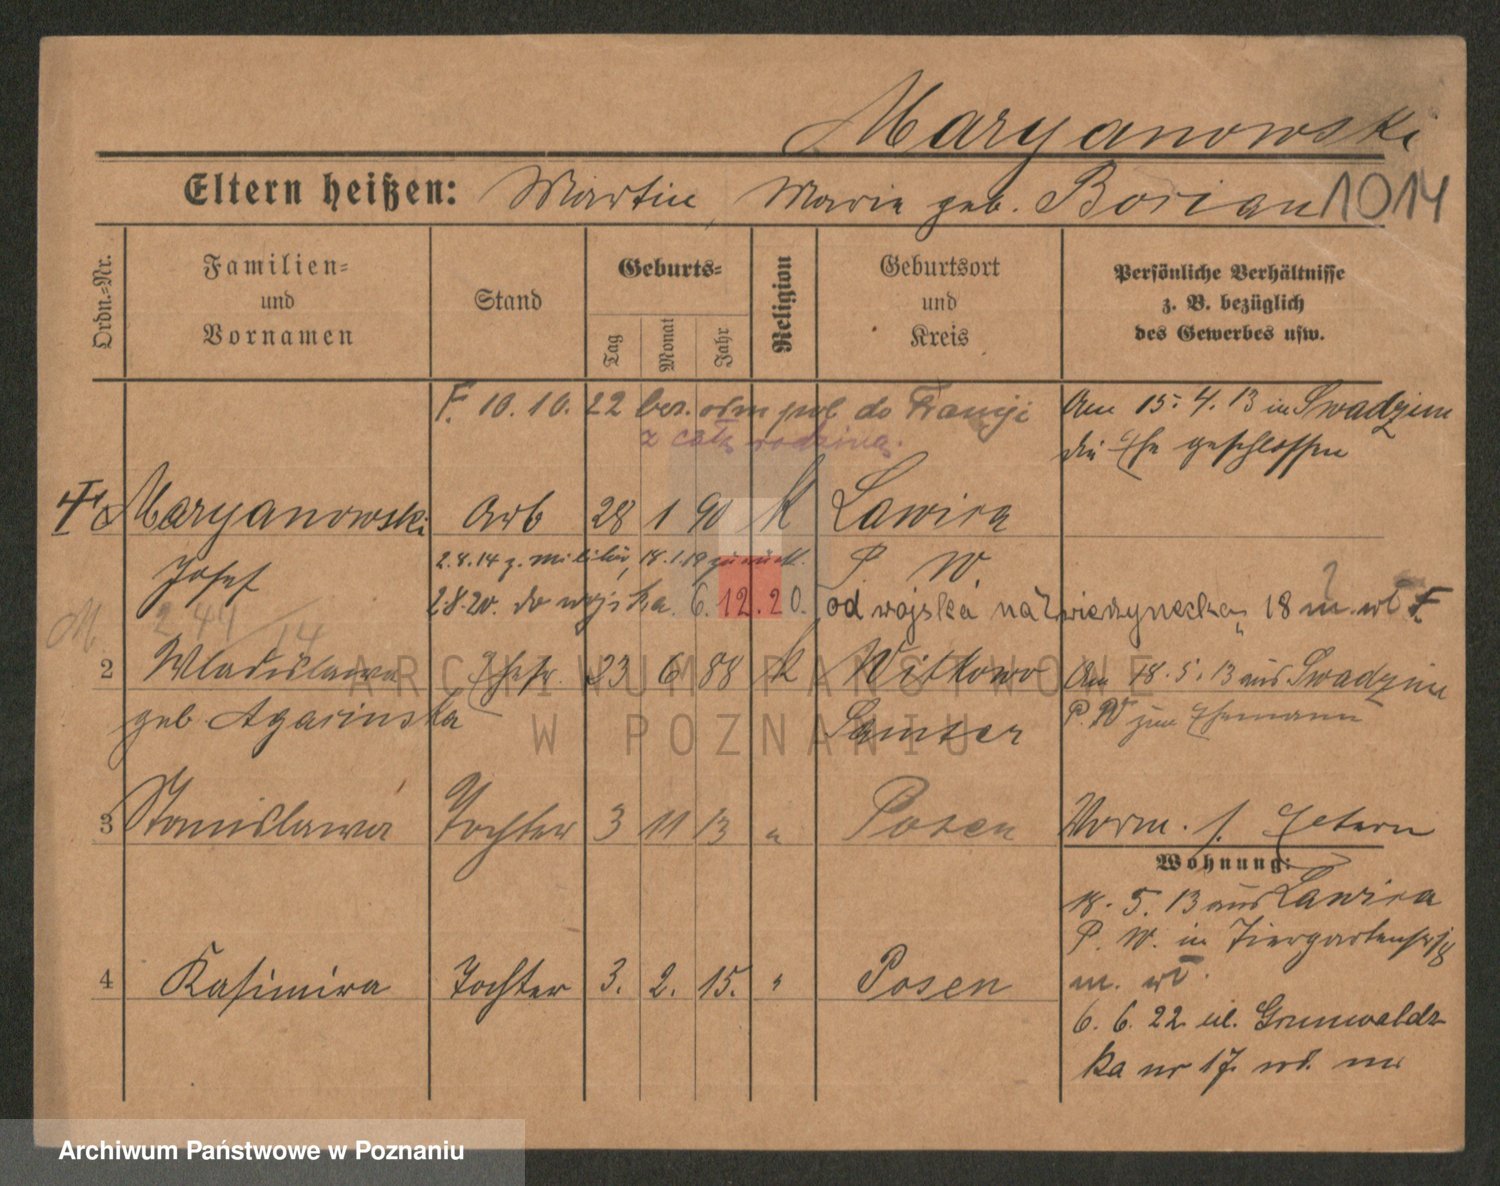 Maryanowski
Eltern heißen: Martin, Marie geb. Borian 1014
Ordn.=Nr.
Familien=
und
Vornamen
Stand
Geburts=
Tag
Monat
Jahr
Religion
Geburtsort
und
Kreis
Persönliche Verhältnisse
z. B. bezüglich
des Gewerbes usw.
F. 10.10.22 bez. odm pol do Francji
z całą rodziną.
Am 15.4.13 in Swadzim
die Ehe geschlossen
Maryanowski Arb 28 1 90 K Lawica
Josef
2.8.14 z. Militär, 18.1.19 zurück.
P. W.
2.8.20. do wojska. 6.12.20. od wojska na Zwierzyniecka 18 m. wł F.
M. 244
14
2 Wladislawa Ehefr. 23 6 88 K Witkowo
geb Agacinska
Samter
Am 18.5.13 aus Swadzim
P. W zum Ehemann
3 Stanislawa Tochter 3 11 13 " Posen
Vorm. s. Eltern
Wohnung:
18.5.13 aus Lawica
P. W. in Tiergartenstr
m. wł.
4 Kasimira Tochter 3. 2. 15. " Posen
6.6.22 ul. Grunwaldz
ka nr 17. wł. m
ARCHIWUM PAŃSTWOWE
W POZNANIU
Archiwum Państwowe w Poznaniu